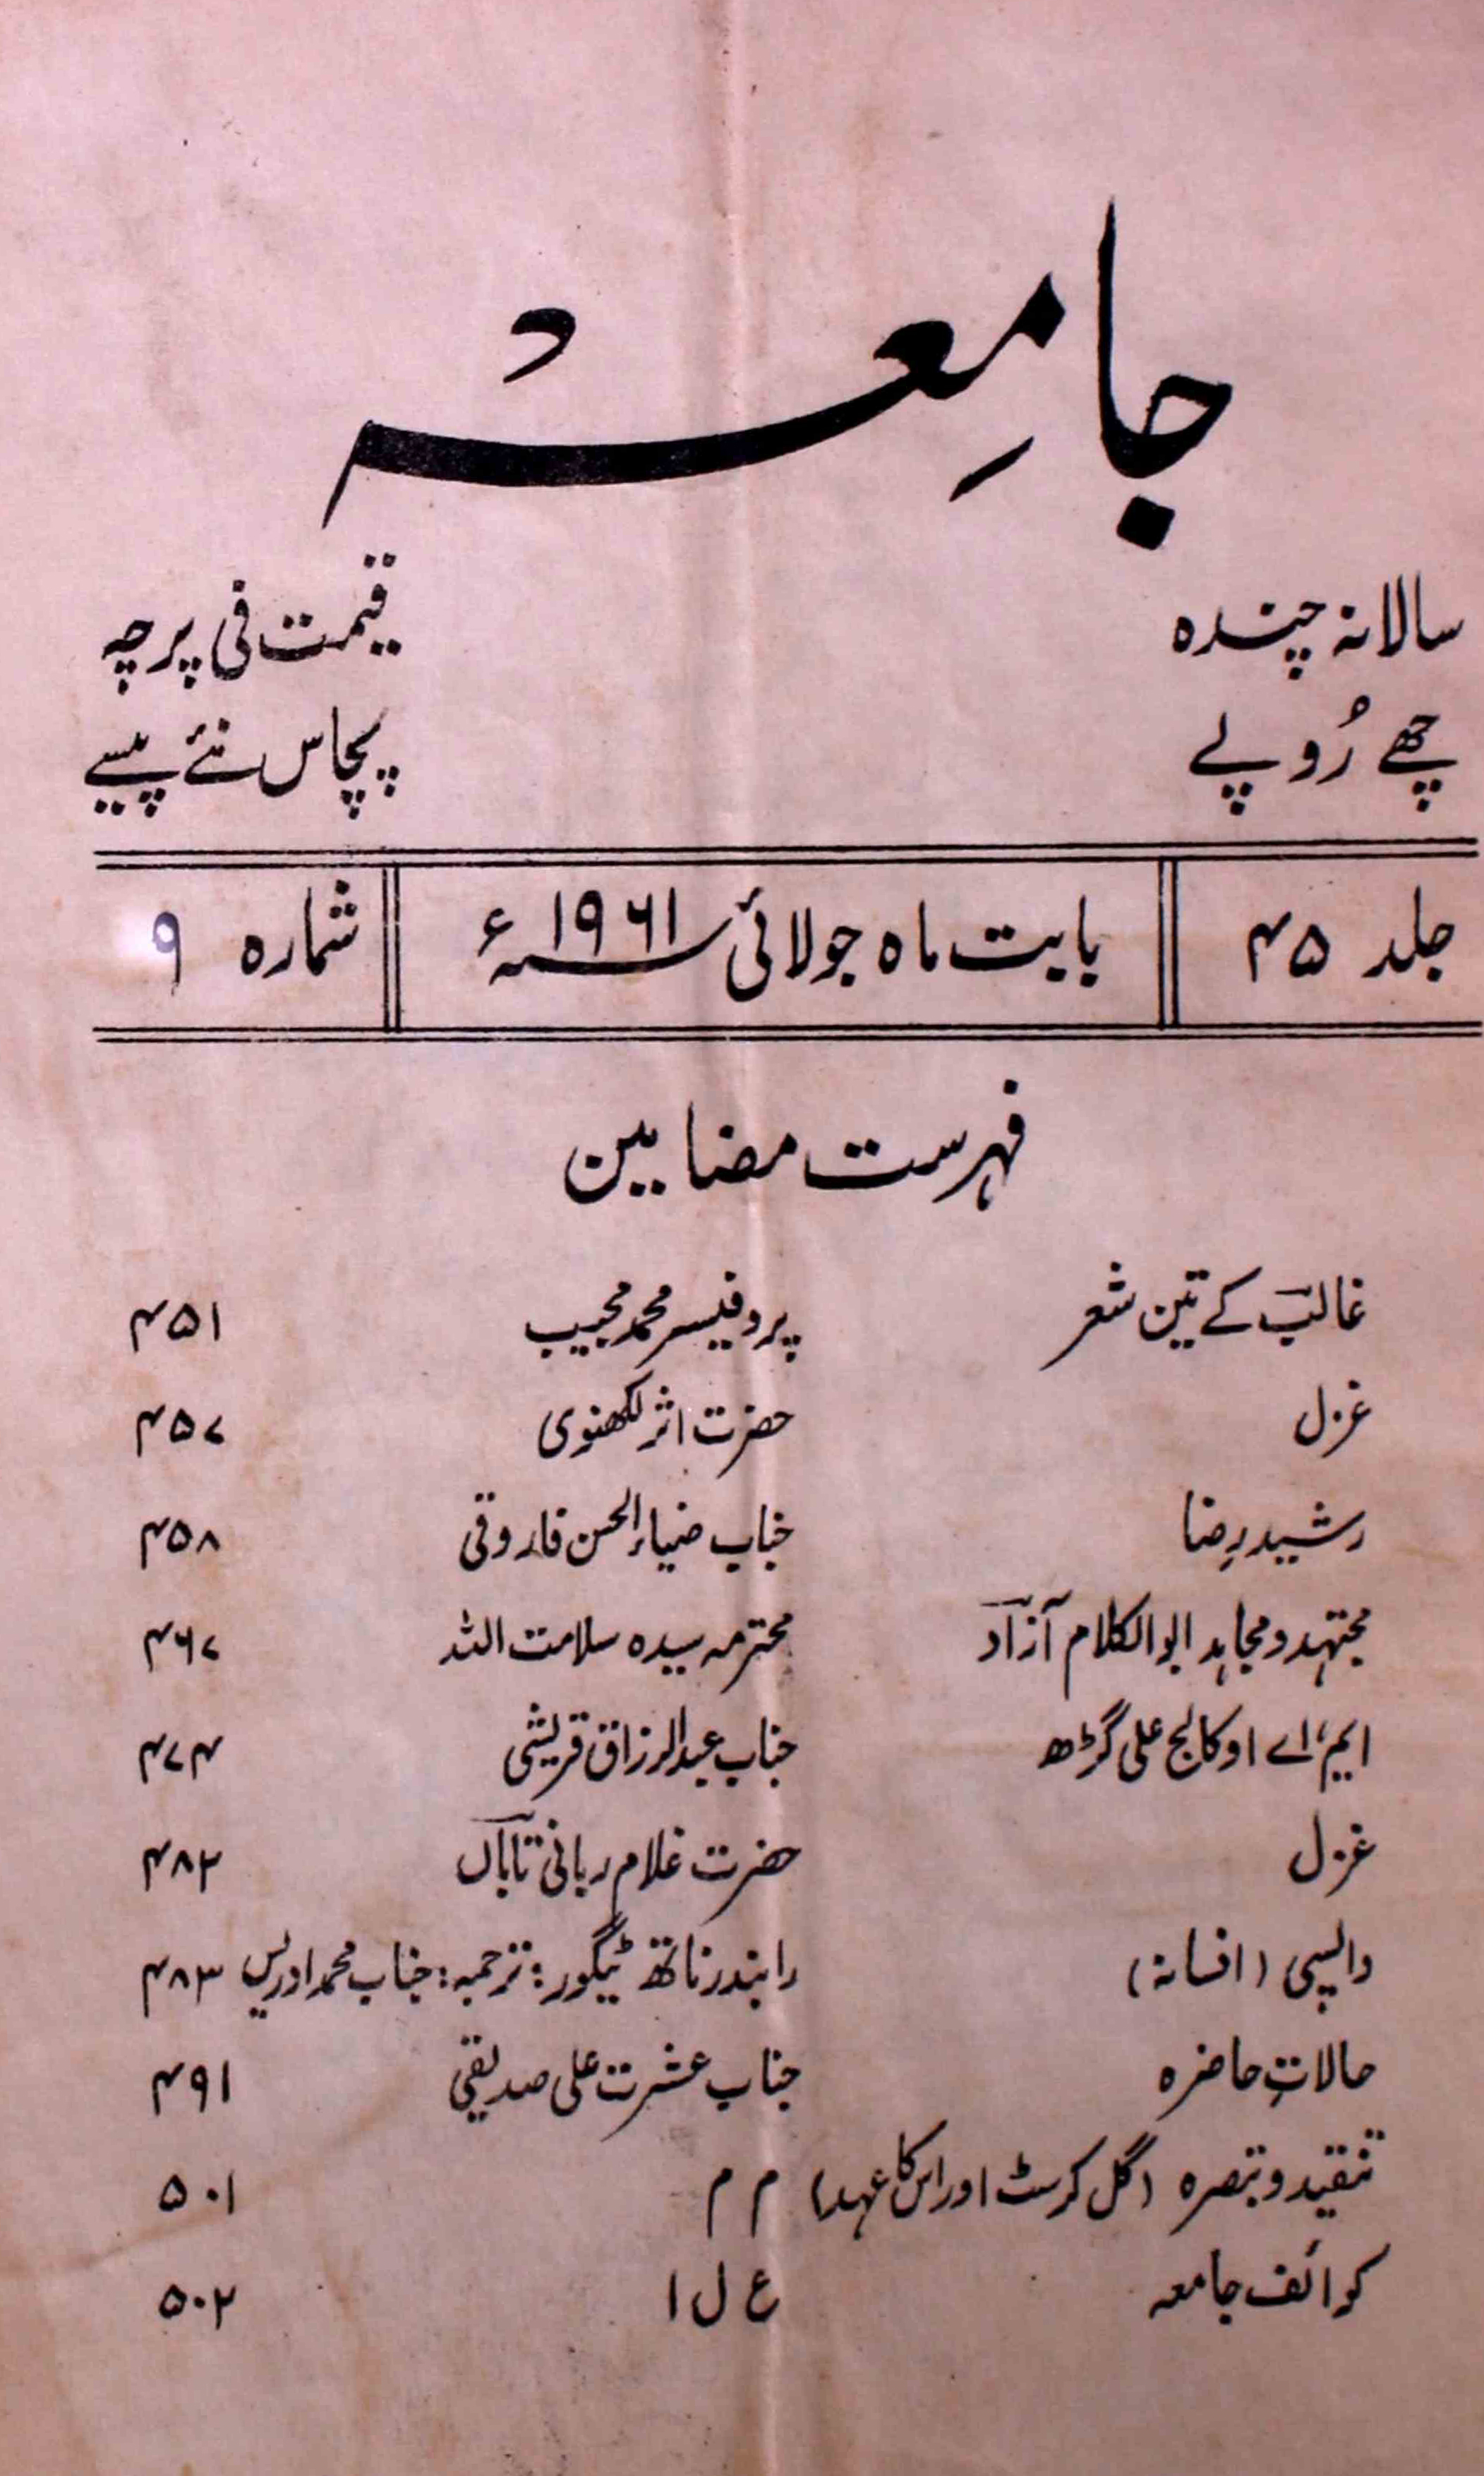 جامِعہ
سالانہ چندہ قیمت فی پرچہ
چھے رُوپے پچاس نئے پیسے
جلد ۴۵ بابت ماہ جولائی ۱۹۶۱ء شمارہ ۹
فہرست مضامین
غالب کے تین شعر پروفیسر محمد مجیب ۴۵۱
غزل حضرت اثر لکھنوی ۴۵۷
رشید رِضا جناب ضیاء الحسن فاروقی ۴۵۸
مجتہد و مجاہد ابوالکلام آزاد محترمہ سیدہ سلامت اللہ ۴۶۷
ایم، اے او کالج علی گڑھ جناب عبدالرزاق قریشی ۴۷۴
غزل حضرت غلام ربانی تاباں ۴۸۲
واپسی (افسانہ) رابندر ناتھ ٹیگور: ترجمہ: جناب محمد ادریس ۴۸۳
حالاتِ حاضرہ جناب عشرت علی صدیقی ۴۹۱
تنقید و تبصرہ (گل کرسٹ اور اس کا عہد) م م ۵۰۱
کوائف جامعہ ع ل ا ۵۰۲